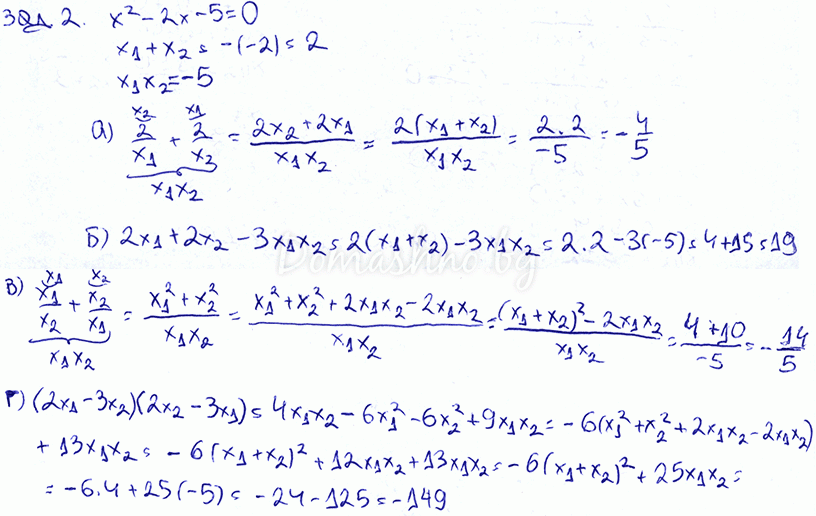 Зад 2. x² - 2x - 5 = 0
x₁ + x₂ = -(-2) = 2
x₁x₂ = -5
а) ˣ²⁄ 2/x₁ + ˣ¹⁄ 2/x₂ = (2x₂ + 2x₁)/(x₁x₂) = 2(x₁ + x₂)/(x₁x₂) = 2.2/-5 = -4/5
x₁x₂
Б) 2x₁ + 2x₂ - 3x₁x₂ = 2(x₁ + x₂) - 3x₁x₂ = 2.2 - 3(-5) = 4 + 15 = 19
Domashno.bg
В) ˣ¹⁄ x₁/x₂ + ˣ²⁄ x₂/x₁ = (x₁² + x₂²)/(x₁x₂) = (x₁² + x₂² + 2x₁x₂ - 2x₁x₂)/(x₁x₂) = ((x₁ + x₂)² - 2x₁x₂)/(x₁x₂) = (4 + 10)/-5 = -14/5
x₁x₂
Г) (2x₁ - 3x₂)(2x₂ - 3x₁) = 4x₁x₂ - 6x₁² - 6x₂² + 9x₁x₂ = -6(x₁² + x₂² + 2x₁x₂ - 2x₁x₂)
+ 13x₁x₂ = -6(x₁ + x₂)² + 12x₁x₂ + 13x₁x₂ = -6(x₁ + x₂)² + 25x₁x₂ =
= -6.4 + 25(-5) = -24 - 125 = -149